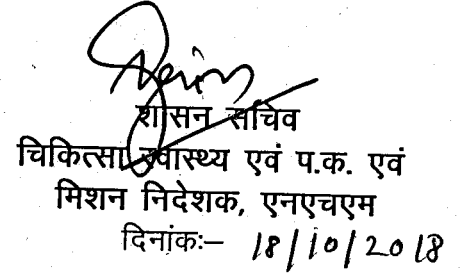 शासन सचिव
चिकित्सा स्वास्थ्य एवं प.क. एवं
मिशन निदेशक, एनएचएम
दिनांकः– 18/10/2018